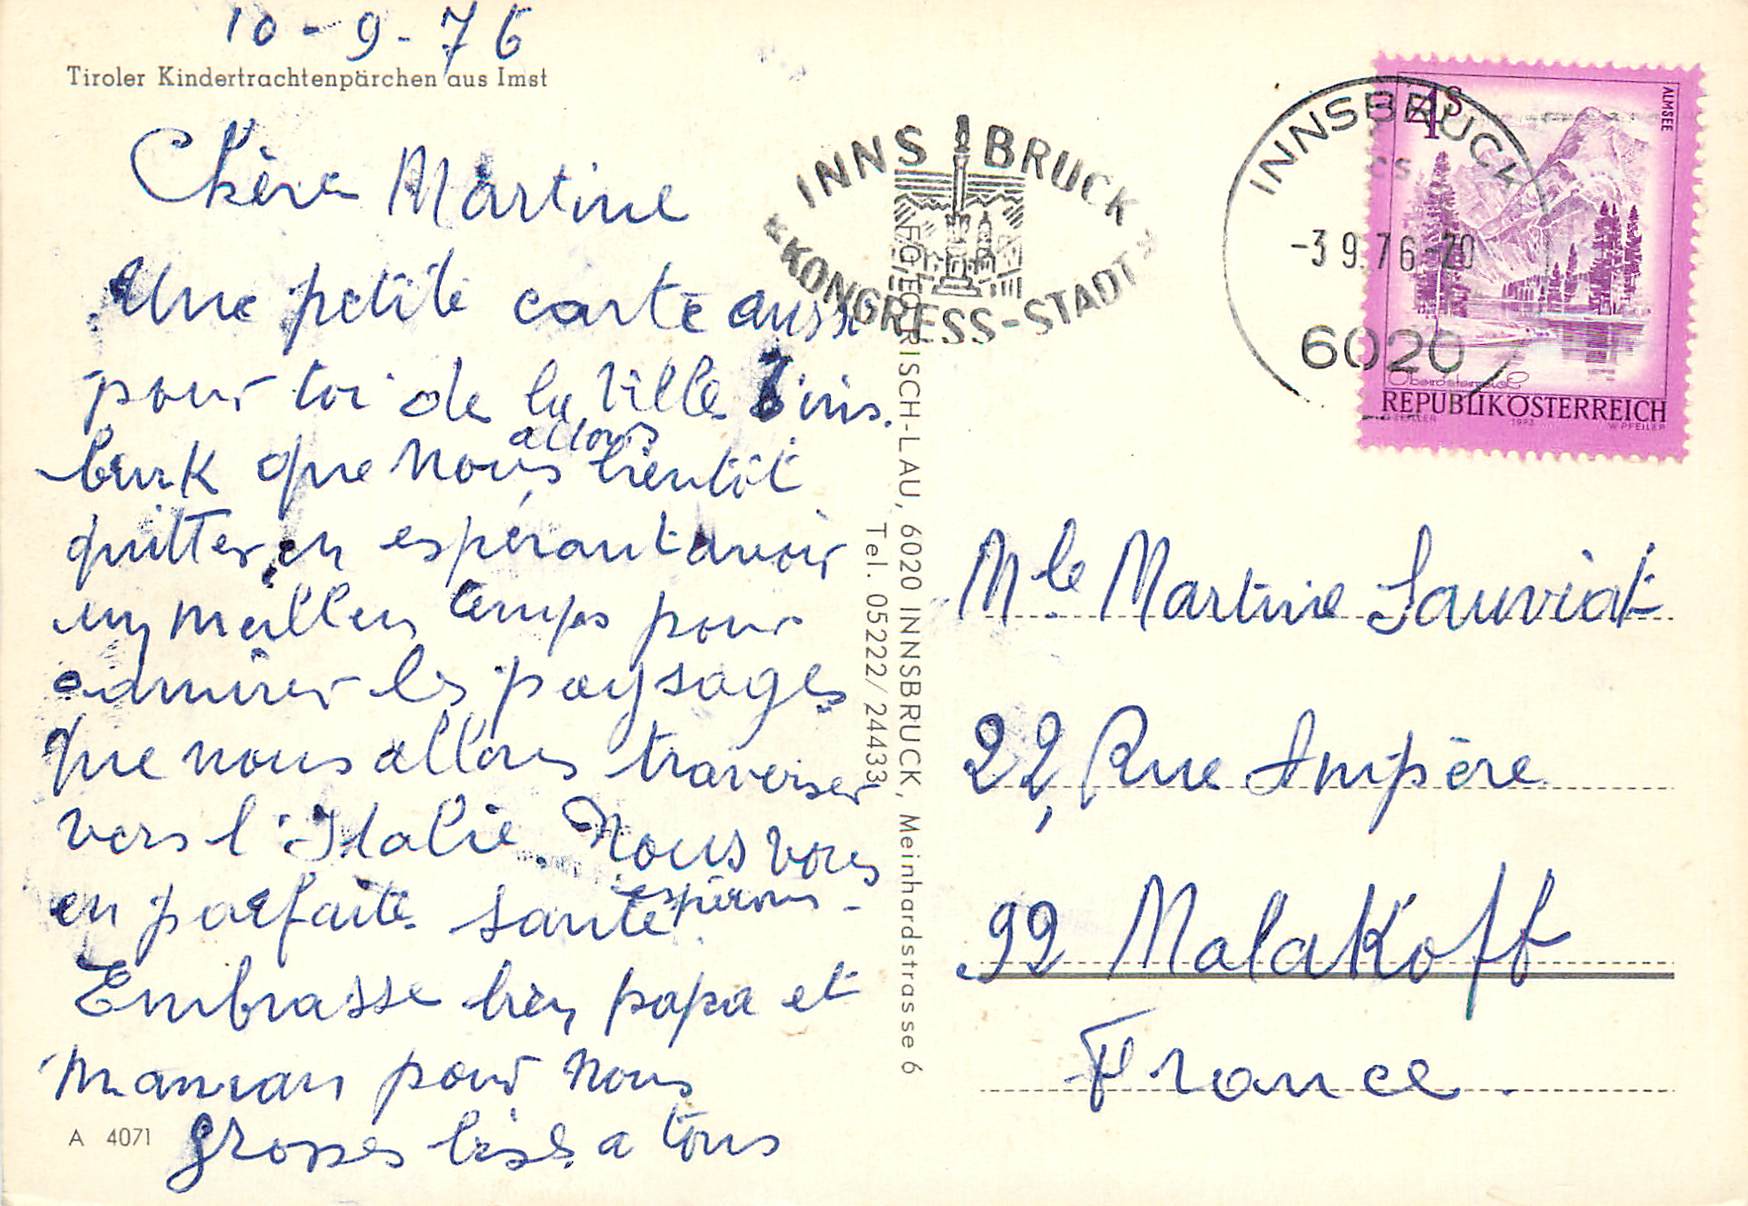 10-9-76
Tiroler Kindertrachtenpärchen aus Imst
Chère Martine
Une petite carte aussi
pour toi de la Ville d'ins.
bruk que nous allons bientôt
quitter, en espérant avoir
un meilleur temps pour
admirer les paysages
que nous allons traverser
vers l'Italie. Nous vous
espérons
en parfaite santé -
Embrasse bien papa et
maman pour nous
grosses bises a tous
A 4071
INNSBRUCK
"KONGRESS-STADT"
FRISCH-LAU, 6020 INNSBRUCK, Meinhardstrasse 6
Tel. 05222/24433
INNSBRUCK
-3 9.76-20
6020
4S
ALMSEE
Oberösterreich
REPUBLIK ÖSTERREICH
1973
W. PFEILER
Mle Martine Sauviat
22, Rue Ampère
92 Malakoff
France.